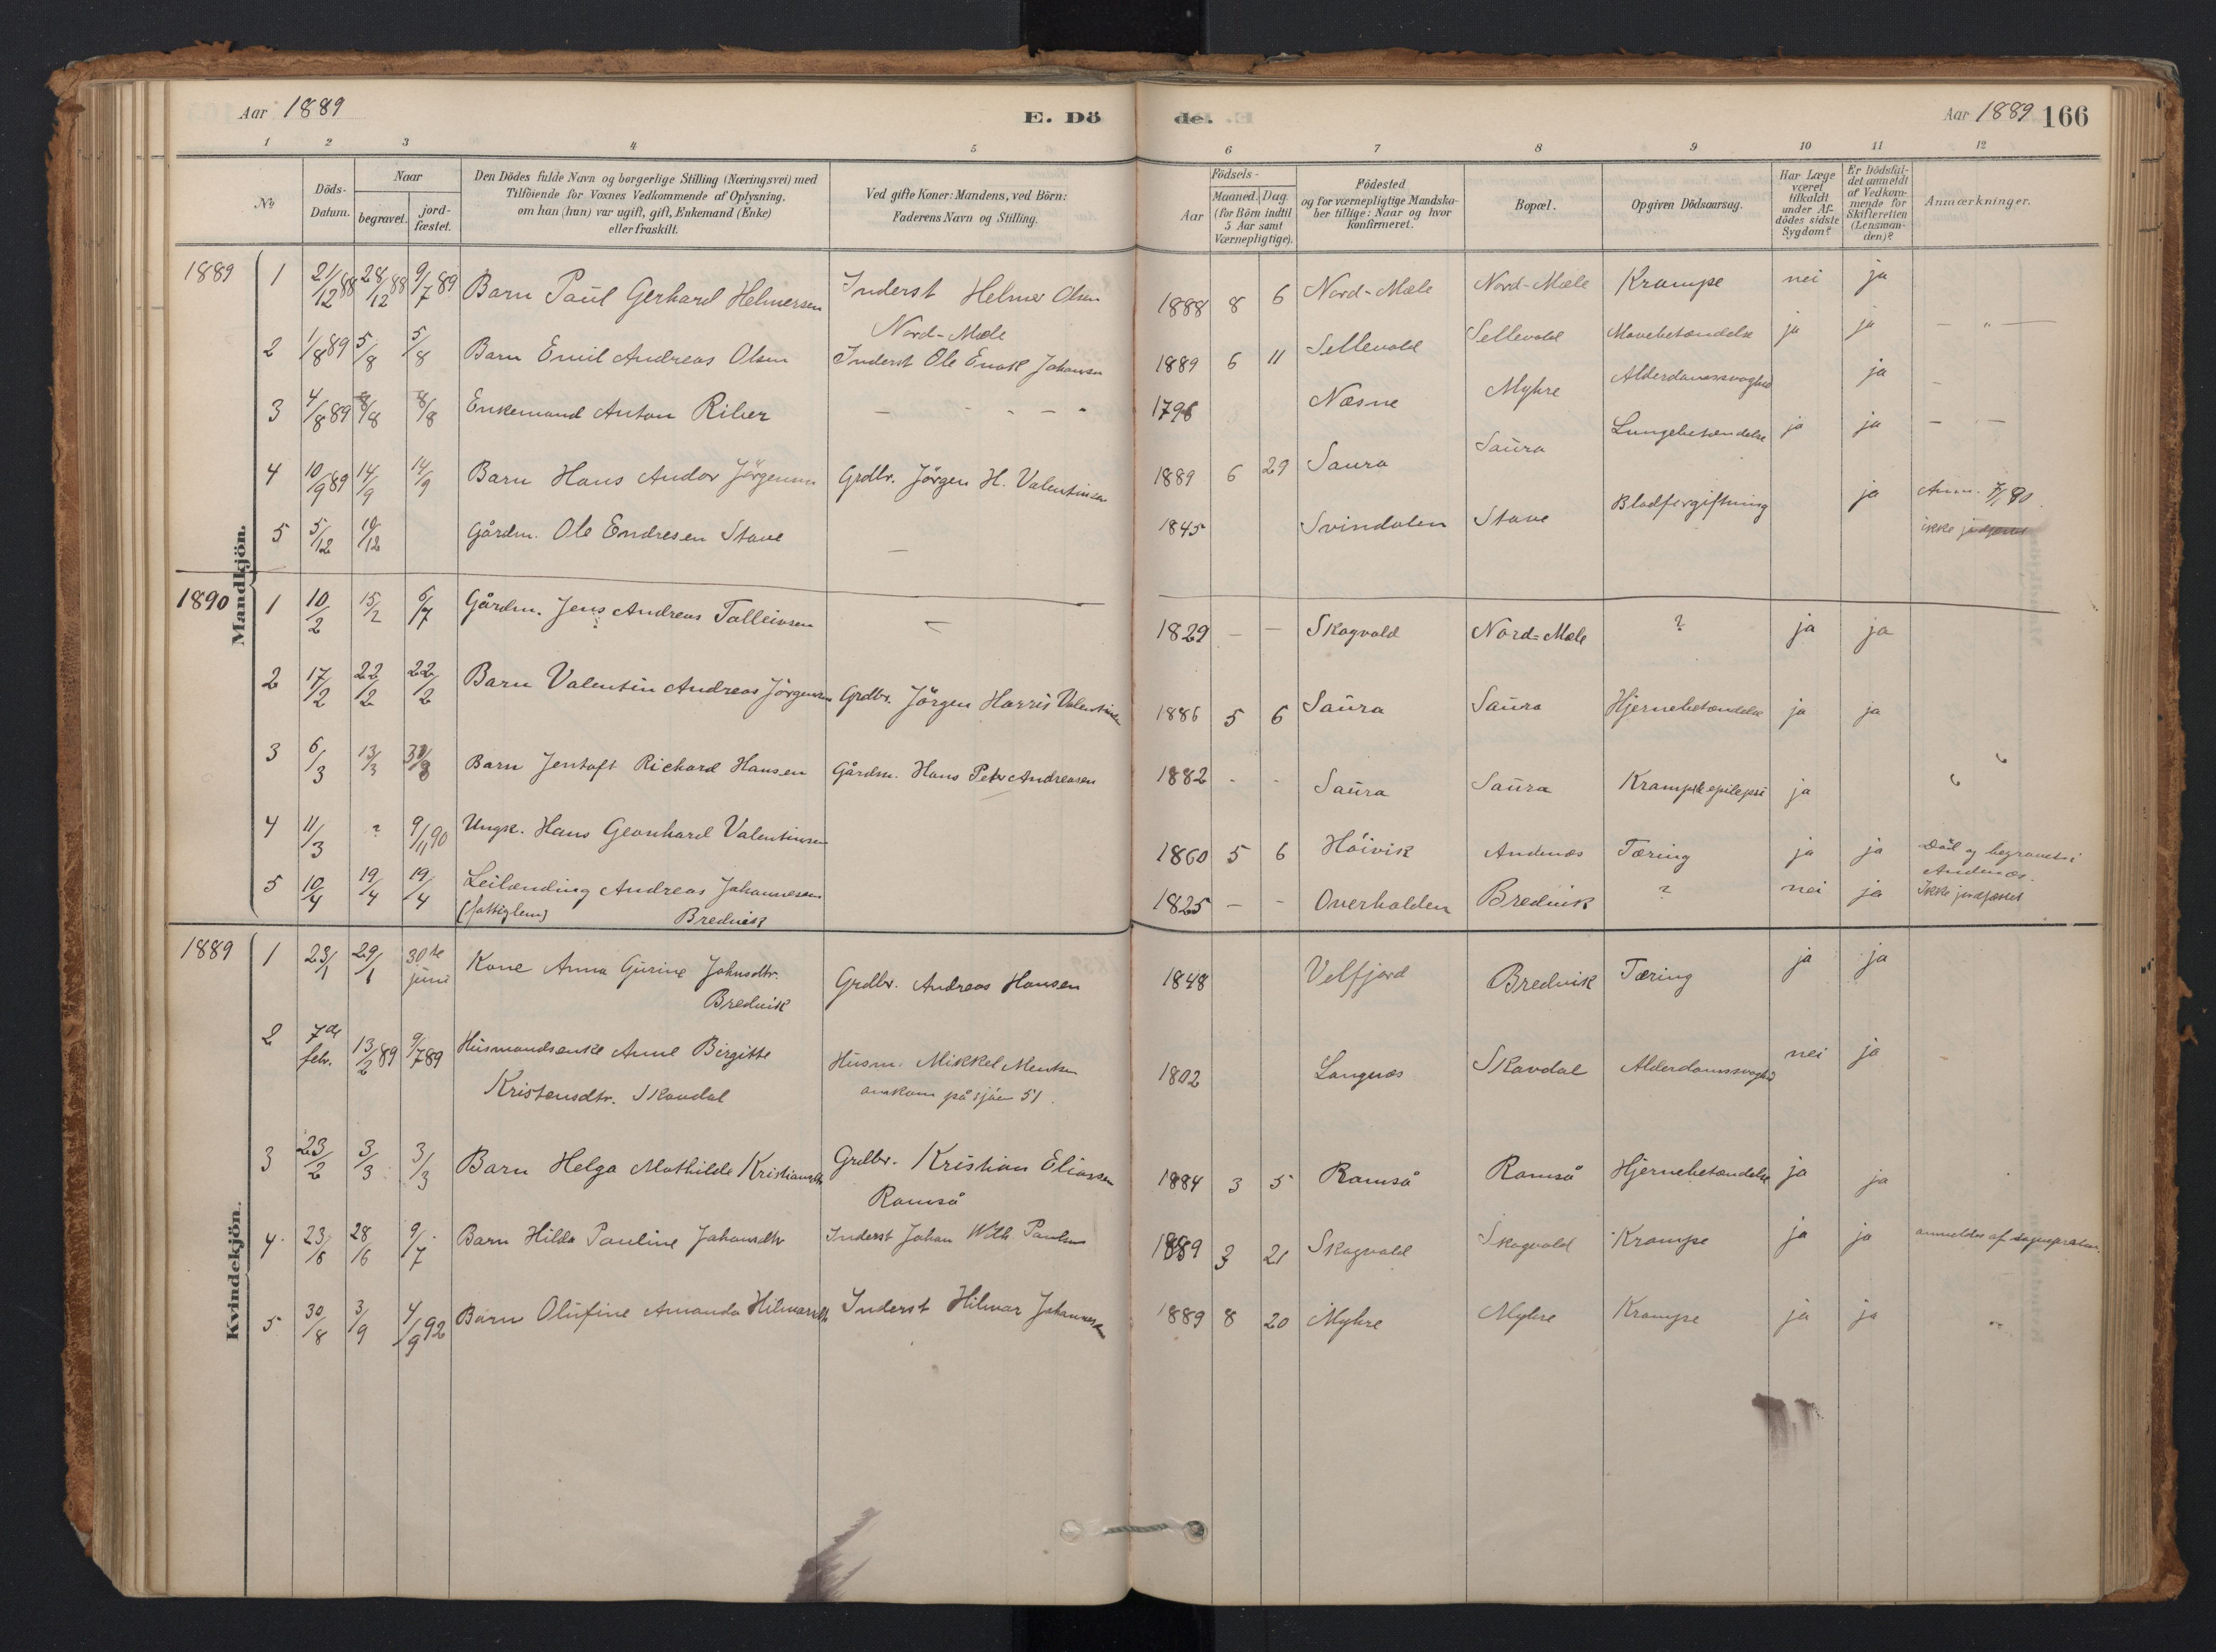 Aar 1889
E. Dö
de.
Aar 1889 166
1 2 3 4 5 6 7 8 9 10 11 12
№
Döds-Datum.
Naar
begravet.
jord-fæstet.
Den Dödes fulde Navn og borgerlige Stilling (Næringsvei) med
Tilföiende for Voxnes Vedkommende af Oplysning,
om han (hun) var ugift, gift, Enkemand (Enke)
eller fraskilt.
Ved gifte Koner: Mandens, ved Börn:
Faderens Navn og Stilling.
Födsels-
Aar
Maaned. Dag.
(for Börn indtil
5 Aar samt
Værnepligtige).
Födested
og for værnepligtige Mandska-
ber tillige: Naar og hvor
konfirmeret.
Bopæl.
Opgiven Dödsaarsag.
Har Læge
været
tilkaldt
under Af-
dödes sidste
Sygdom?
Er Dödsfal-
det anmeldt
af Vedkom-
mende for
Skifteretten
(Lensman-
den)?
Anmærkninger.
Mandkjön.
1889 1 21/12 88 28/12 88 9/7 89 Barn Paul Gerhard Helmersen Inderst Helmer Olsen Nord-Mæle 1888 8 6 Nord-Mæle Nord-Mæle Krampe nei ja
2 1/8 89 5/8 5/8 Barn Emil Andreas Olsen Inderst Ole Enok Johansen 1889 6 11 Sellevold Sellevold Mavebetændelse ja ja — " —
3 4/8 89 8/8 8/8 Enkemand Anton Riber — - - — - 1796 Næsne Myhre Alderdomssvaghed ja —
4 10/9 89 14/9 14/9 Barn Hans Andor Jörgensen Grdbr. Jörgen H. Valentinsen 1889 6 29 Saura Saura Lungebetændelse ja ja — —
5 5/12 10/12 Gårdm. Ole Endresen Stave — 1845 Svindalen Stave Blodforgiftning ja Anm. 7/1 90.
ikke
1890 1 10/2 15/2 6/7 Gårdm. Jens Andreas Tolleivsen — 1829 — — Skogvold Nord-Mæle ? ja ja
2 17/2 22/2 22/2 Barn Valentin Andreas Jörgensen Grdbr. Jörgen Harris Valentinsen 1886 5 6 Saura Saura Hjernebetændelse ja ja
3 6/3 13/3 31/8 Barn Jentoft Richard Hansen Gårdm. Hans Peter Andreasen 1882 - - Saura Saura Krampe epilepsi ja
4 11/3 ? 9/11 90 Ungk. Hans Geonhard Valentinsen 1860 5 6 Höivik Andenæs Tæring ja ja Död og begravet i Andenæs.
5 10/4 19/4 19/4 Leilænding Andreas Johannesen
(fattiglem) Brednik 1825 — - Overhalden Brednik ? nei ja Ikke jordfæstet
Kvindekjön.
1889 1 23/1 29/1 30te juni Kone Anna Gurine Johnsdtr.
Brednik Grdbr. Andreas Hansen 1848 Velfjord Brednik Tæring ja ja
2 7de febr. 13/2 89 9/7 89 Husmandsenke Anne Birgitte
Kristensdtr. Skavdal Husm. Mikkel Mentsen
omkom på sjöen 51. 1802 Langnæs Skavdal Alderdomssvaghed nei ja
3 23/2 3/3 3/3 Barn Helga Mathilde Kristiansdtr Grdbr. Kristian Eliassen
Ramså 1884 3 5 Ramså Ramså Hjernebetændelse ja ja
4 23/6 28/6 9/7 Barn Hilda Pauline Johansdtr Inderst Johan Wilh. Paulsen 1889 3 21 Skogvold Skogvold Krampe ja ja anmeldes af sognepræsten.
5 30/8 3/9 4/9 92 Barn Olufine Amanda Hilmarsdtr Inderst Hilmar Johannesen 1889 8 20 Myhre Myhre Krampe ja ja